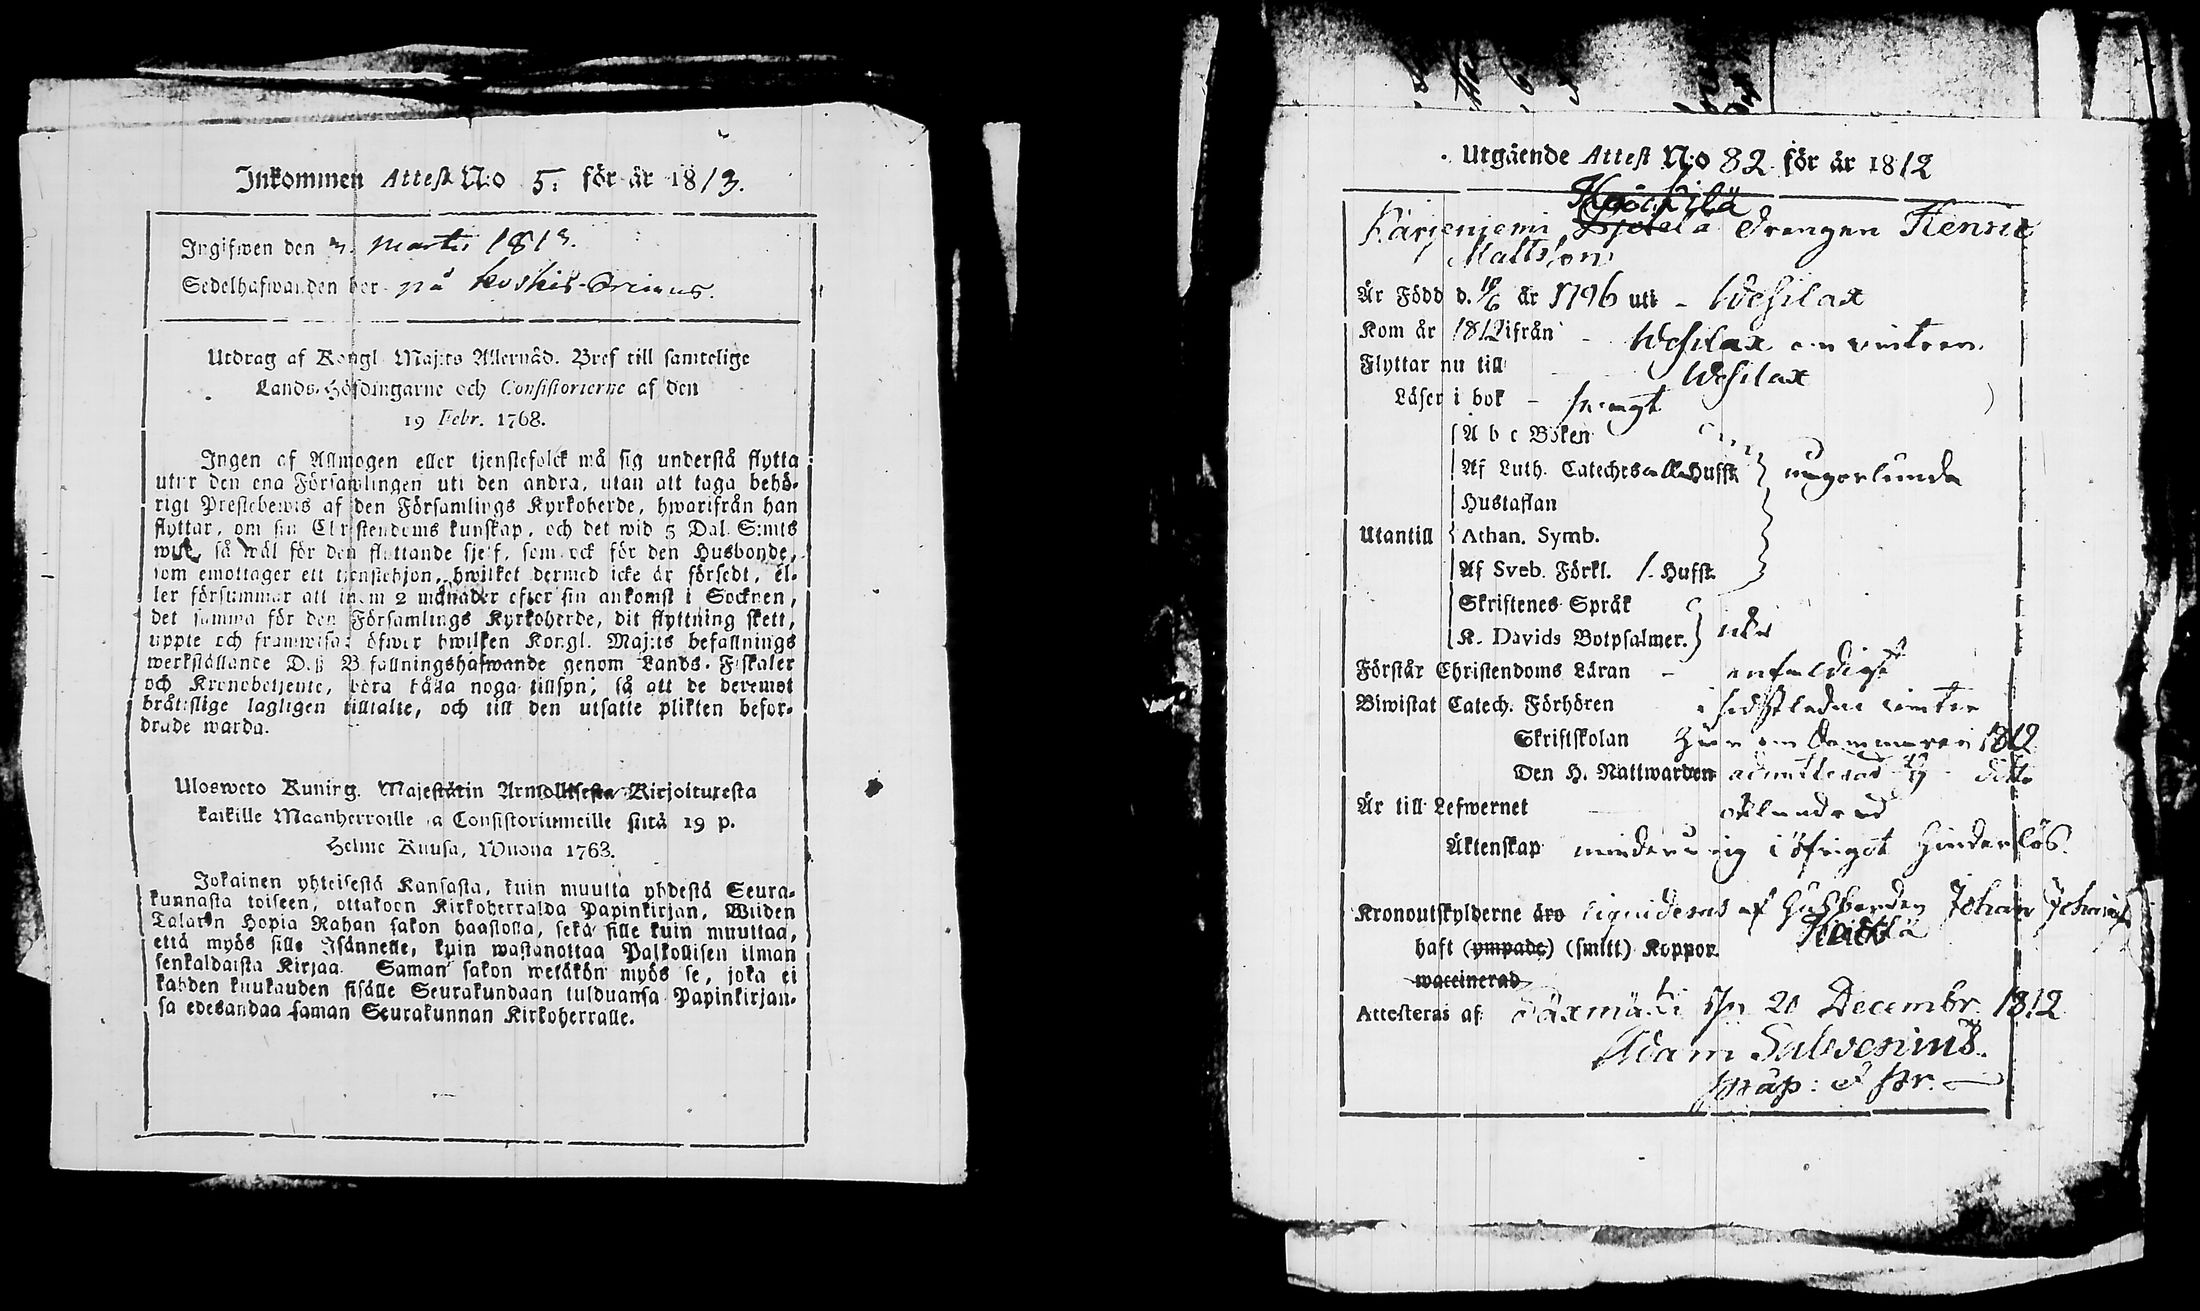 Inkommen Attest N:o 5. för år 1813.
Ingifwen den 3. Martii 1813.
Sedelhafwanden bor på
Utdrag af Kongl. Maj:ts Allernåd. Bref till samtelige
Lands-Höfdingarne och Consistorierne af den
19 Febr. 1768.
Ingen af Allmogen eller tjenstefolck må sig understå flytta
utur den ena Församlingen uti den andra, utan att taga behö-
rigt Prestebewis af den Församlings Kyrkoherde, hwarifrån han
flyttar, om sin Christendoms kunskap, och det wid 5 Dal. S:mts
wite, så wäl för den flyttande sjelf, som ock för den Husbonde,
som emottager ett tjenstehjon, hwilket dermed icke är försedt, el-
ler försummar att inom 2 månader efter sin ankomst i Socknen,
det samma för den Församlings Kyrkoherde, dit flyttning skett,
uppte och framwisa; öfwer hwilken Kongl. Maj:ts befallnings
werkställande D. B. fallningshafwande genom Lands-Fiskaler
och Kronobetjente, böra låta noga tillsyn; så att de deremot
bråttslige lagligen tilltalte, och till den utsatte plikten befor-
drade warda.
Ulosweto Kuning. Majestätin Armollisesta Kirjoituresta
kaikille Maanherroille ja Consistoriumeille siitä 19 p.
Helme Kuusa, Wuona 1768.
Jokainen yhteisestä Kansasta, kuin muutta yhdestä Seura-
kunnasta toiseen, ottakoon Kirkoherralda Papinkirjan, Wiiden
Talarin Hopia Rahan sakon haastolla, sekä sille kuin muuttaa,
että myös sille Isännelle, kuin wastanottaa Palkollisen ilman
senkaldaista Kirjaa. Saman sakon wetäkön myös se, joka ei
kahden kuukauden sisälle Seurakundaan tulduansa Papinkirjan-
sa edesandaa saman Seurakunnan Kirkoherralle.
Utgående Attest N:o 82 för år 1812
Heickilä
Kärjeniemi drengen Henric
Mattsson
Är Född d. 10/6 år 1796 uti – Wesilax
Kom år 1812 ifrån – Wesilax om vintren.
Flyttar nu till Wesilax
Läser i bok –
A b c Boken
Af Luth. Cateches alla Hufst. någorlunda
Hustaflan
Utantill Athan. Symb.
Af Sveb. Förkl. 1. Hufst.
Skriftenes Språk
K. Davids Botpsalmer.
Förstår Christendoms Läran – enfaldigt
Biwistat Catech. Förhören i sidstledne winter
Skriftskolan här om sommaren 1812
Den H. Nattwarden admitterad dito
Är till Lefwernet oklandrad
Äktenskap minderårig i öfrigt hinderlös.
Kronoutskylderne äro liquideras af Husbonden Johan
Heickilä
haft (ympade) (smitt) Koppor.
waccinerad
Attesteras af Säxmäki d. 20 Decembr. 1812
Adam